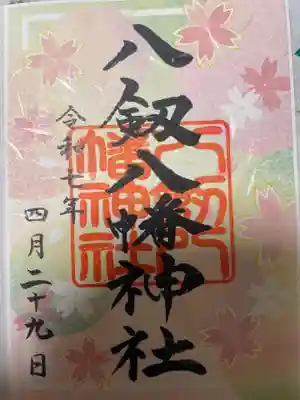 八剱八幡神社
八剱八幡神社
令和七年
四月二十九日